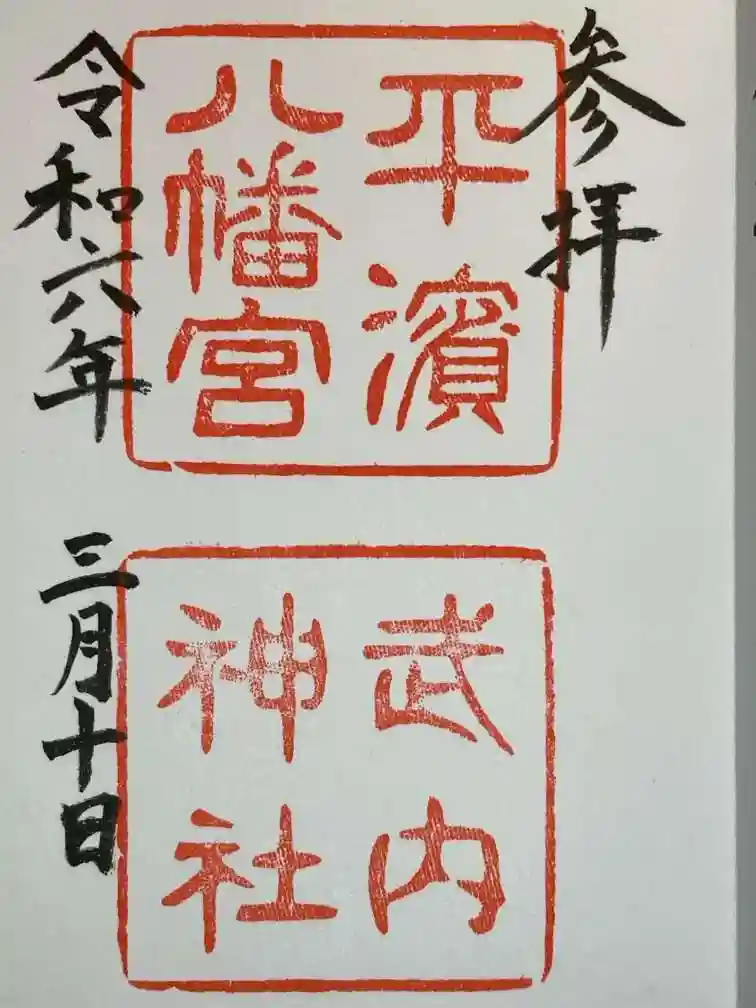 参拝
平濱
八幡宮
武内
神社
令和六年 三月十日